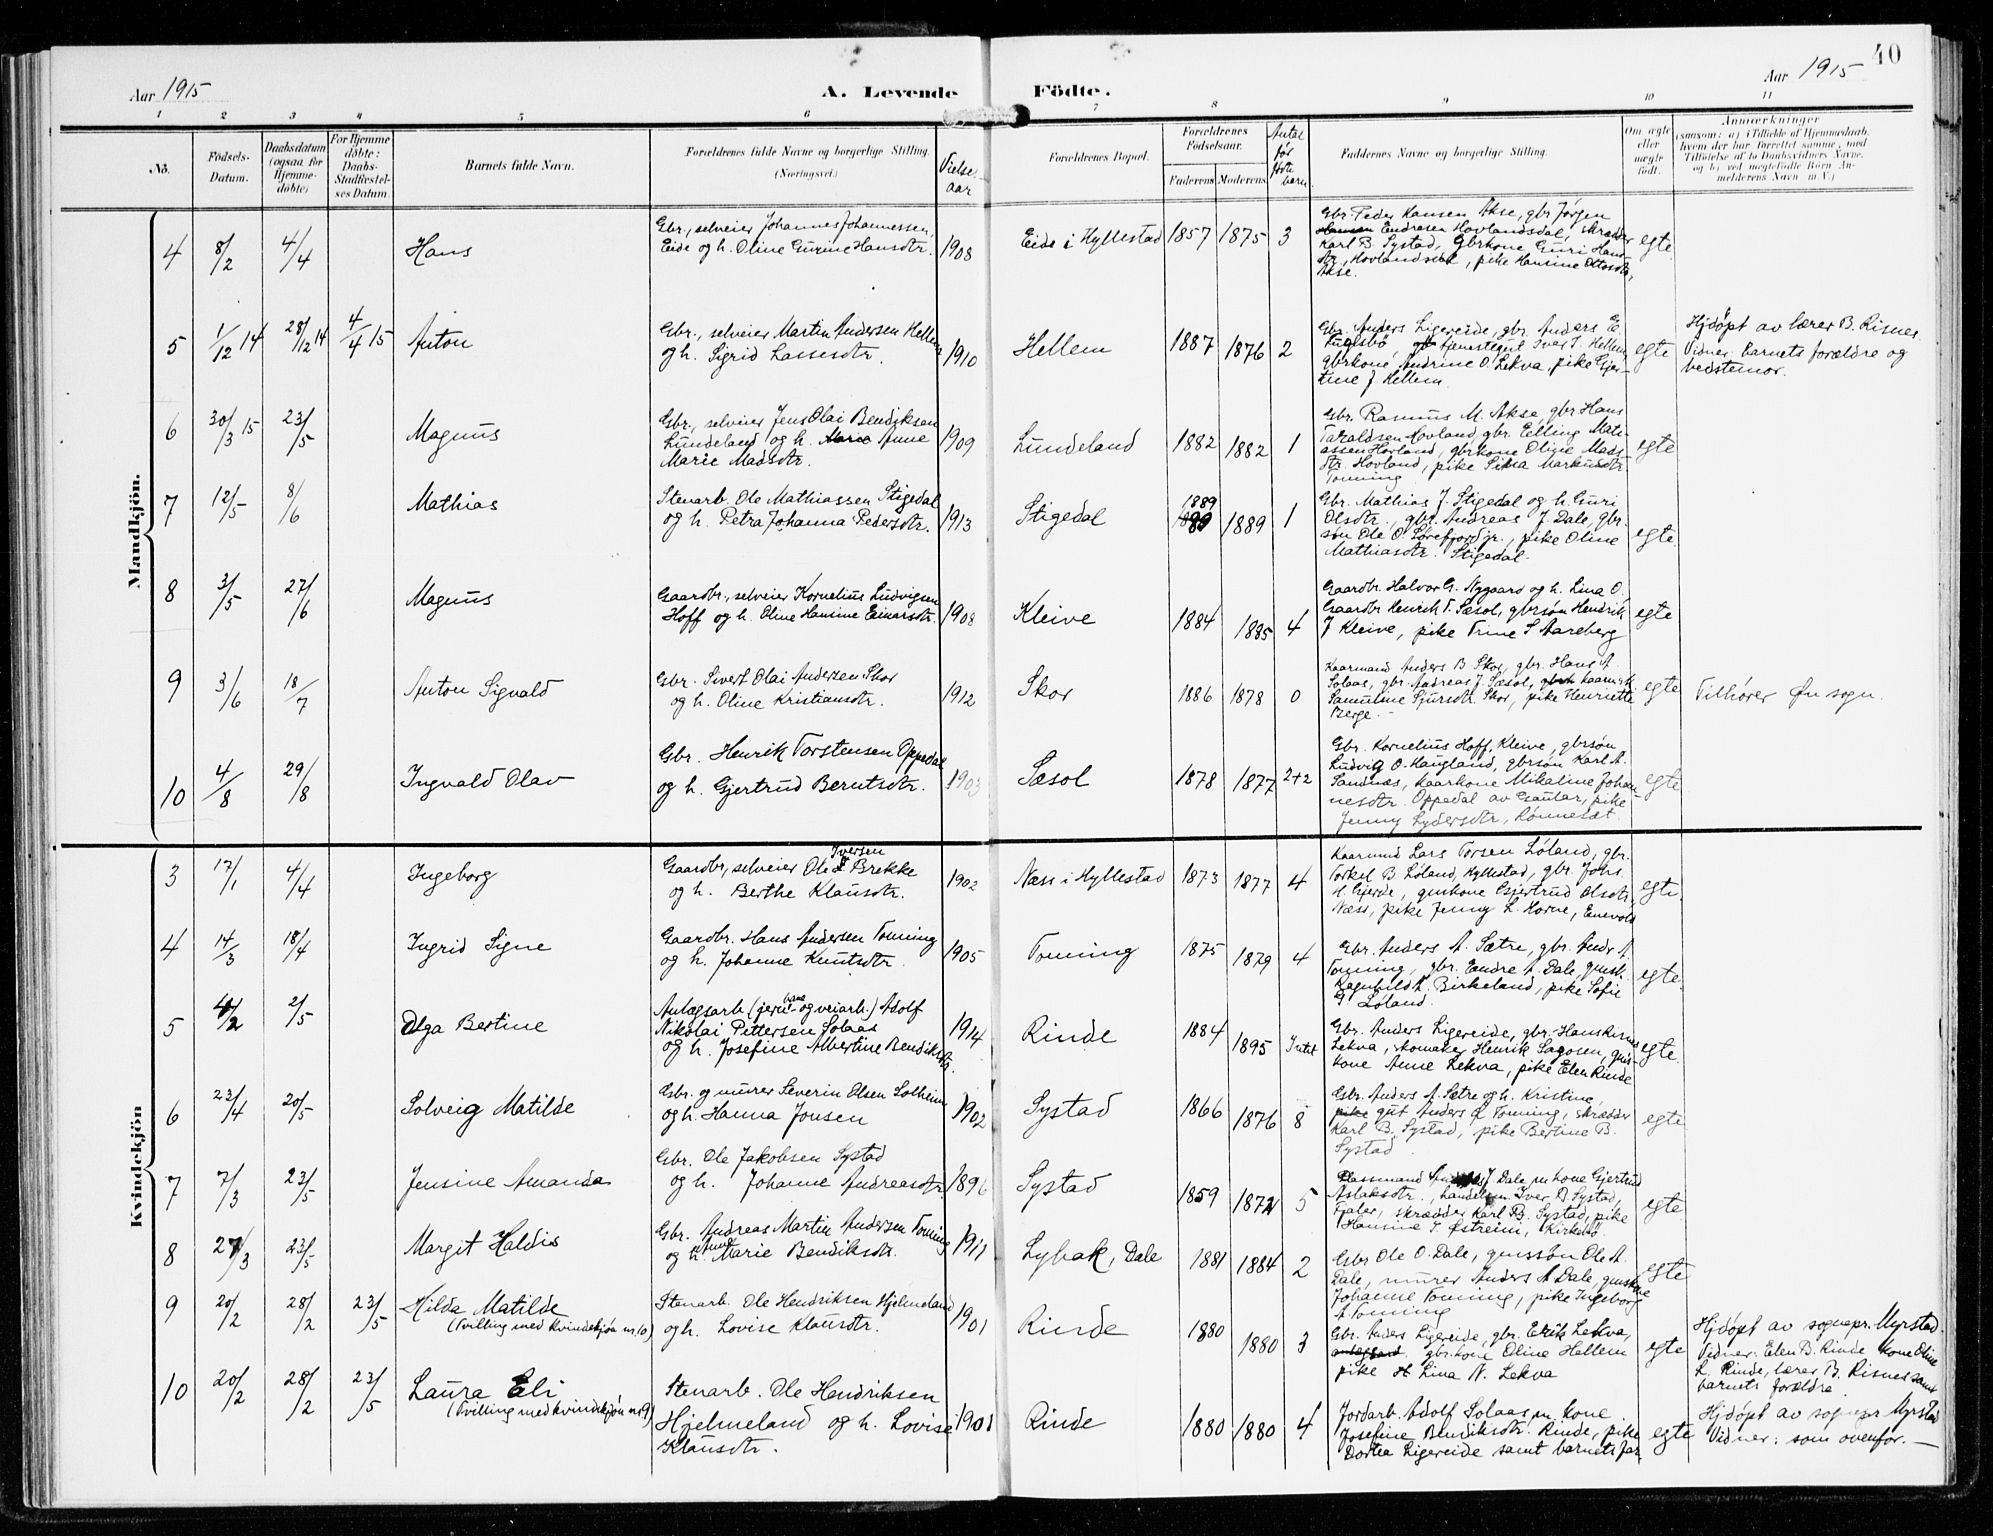 Aar 1915
A. Levende
Födte.
Aar 1915
40
1 2 3 4 5 6 7 8 9 10 11
No.
Födsels-
Datum.
Daabsdatum
(ogsaa for
Hjemme-
döbte)
For Hjemme
döbte:
Daabs-
Stadfæstel-
ses Datum.
Barnets fulde Navn.
Forældrenes fulde Navne og borgerlige Stilling.
(Næringsvei.)
Vielses
aar
Forældrenes Bopæl.
Forældrenes
Födselsaar.
Faderens Moderens
Antal
før
födte
barn.
Faddernes Navne og borgerlige Stilling.
Om ægte
eller
uægte
födt.
Anmærkninger
(saasom: a) i Tilfælde af Hjemmedaab,
hvem der har forrettet samme, med
Tilföielse af to Daabsvidners Navne,
og b) ved uegtefödte Börn An-
melderens Navn m. V.)
Mandkjön.
4 8/2 4/4 Hans
Gbr., selveier Johannes Johannessen,
Eide og h. Oline Gurine Hansdtr. 1908
Eide i Hyllestad 1857 1875 3
Gbr Peder Hansen Akse, gbr Jørgen
Hansen Endresen Hovlandsdal, skrædder
Karl B. Systad, Gbrkone Guri Hans
dtr, Hovlands, pike Hansine Ottosdtr,
Akse.
egte
5 1/12 14 28/12 14 4/4 15 Anton
Gbr., selveier Martin Andersen Hellem
og h. Sigrid Lassesdtr. 1910
Hellem 1887 1876 2
Gbr. Anders Ligereide, gbr. Anders E.
Fuglsbø tjenestegut Iver I. Hellem,
gbrkone Andrine O. Lekva, pike Gjer-
tine J. Hellem
egte
Hjdøpt av lærer B. Risnes.
Vidner: barnets forældre og
bedstemor.
6 30/3 15 23/5 Magnus
Gbr., selveier Jens Olai Bendiksen
Lundeland og h. Marie Anne
Marie Madsdtr. 1909
Lundeland 1882 1882 1
Gbr. Rasmus M. Akse, gbr Hans
Taraldsen Hovland, gbr. Elling Mati-
assen Hovland, gbrkone Oline Mads-
dtr. Hovland, pike Sina Markusdtr
Tonning
egte
7 12/5 8/6 Mathias
Stenarb. Ole Mathiassen Stigedal
og h. Petra Johanna Pedersdtr. 1913
Stigedal 1889 1889 1
Gbr. Mathias J. Stigedal og h. Guri
Olsdtr., gbr. Andreas J. Dale, gbr.
søn Ole O. Sørefjord jr., pike Oline
Mathiasdtr. Stigedal.
egte.
8 3/5 27/6 Magnus
Gaardbr., selveier Kornelius Ludvigsen
Hoff og h. Oline Hansine Einarsdtr. 1908
Kleive 1884 1885 4
Gaardbr. Halvor G. Nygaard og h. Lina O.,
Gaardbr Henrik T. Sæsol, gbrsøn Hendrik
J Kleive, pike Trine S Aareberg
egte
9 3/6 18/7 Anton Sigvald
Gbr. Sivert Olai Andersen Skor
og h. Oline Kristiansdtr. 1912
Skor 1886 1878 0
Kaarmand Anders B Skor, gbr. Hans A.
Solaas, gbr. Andreas J. Sæsol, kaarmsk
Samuline Sjursdtr. Skor, pike Henriette
Berge.
egte
Tilhører Øn sogn.
10 4/8 29/8 Ingvald Olav
Gbr. Henrik Torstensen Oppedal
og h. Gjertrud Berntsdtr. 1903
Sæsol 1878 1877 2+2
Gbr. Kornelius Hoff, Kleive, gbrsøn
Ludvig O. Haugland, gbrsøn Karl A.
Sandnæs, kaarkone Mikaline Johan-
nesdtr. Oppedal av Gaular, pike
Jenny Lydersdtr, Rønneset.
egte
Kvindekjön
3 17/1 4/4 Ingeborg
Gaardbr, selveier Ole Iversen Brekke
og h. Berthe Klausdtr. 1902
Næss i Hyllestad 1873 1877 4
Kaarmand Lars Torsen Løland, gbr.
Torkel B Løland, Hyllestad, gbr. Johs.
H. Gjerde, gmskone Gjertrud Olsdtr,
Næss, pike Jenny L. Horne, Enevold
egte.
4 14/3 18/4 Ingrid Signe
Gaardbr. Hans Andersen Tonning
og h. Johanne Knutsdtr. 1905
Tonning 1875 1879 4
Gbr. Anders A. Sætre, gbr. Andr A.
Tonning, gbr. Endre A. Dale, gmsk.
Ragnhild A. Birkeland, pike Sofie
G. Løland.
egte.
5 4/2 2/5 Olga Bertine
Anlægsarb (jernbane- og veiarb.) Adolf
Nikolai Pettersen Solaas
og h. Josefine Albertine Bendiksdtr. 1914
Rinde 1884 1895 Intet
Gbr. Anders Ligereide, gbr. Hans Risnes
Lekva, skomaker Henrik Sagosen, gms-
kone Anne Lekva, pike Elen Rinde
egte.
6 23/4 20/5 Solveig Matilde
Gbr. og murer Severin Olsen Solheim
og h. Hanna Jonsen 1902
Systad 1866 1876 8
Gbr. Anders A. Sætre og h. Kristine,
pike gut Anders A Tonning, skrædder
Karl B. Systad, pike Bertine B.
Systad
egte
7 7/3 23/5 Jensine Amanda
Gbr. Ole Jakobsen Systad
og h. Johanne Andreasdtr 1896
Systad 1859 1872 5
Plassmand J Dale, m kone Gjertrud
Aslaksdtr., handelsm. Iver B Systad,
Fjaler, skrædder Karl B. Systad, pike
Hansine I Østreim, Kirkebø
egte
8 27/3 23/5 Margit Haldis
Gbr. Andreas Martin Andersen Tonning
og h. Anne Marie Bendiksdtr. 1911
Lybak, Dale 1881 1884 2
Gbr Ole O. Dale, gmssøn Ole A.
Dale, murer Anders A Dale, gmskone
Johanne Tonning, pike Ingeborg
A Tonning
egte
9 20/2 28/2 23/5 Hilda Matilde
(Tvilling med kvindekjøn nr. 10)
Stenarb. Ole Hendriksen Hjelmeland
og h. Lovise Klausdtr. 1901
Rinde 1880 1880 3
Gbr. Anders Ligereide, gbr. Erik Lekva,
gbr.kone Oline Hellem
pike Lina N. Lekva
egte
Hjdøpt av sognepr. Myrstad.
Vidner: Elen B. Rinde kone Oline
L. Rinde, lærer B. Risnes samt
barnets forældre
10 20/2 28/2 23/5 Laura Eli
(Tvilling med kvindekjøn nr 9)
Stenarb. Ole Hendriksen
Hjelmeland og h. Lovise
Klausdtr. 1901
Rinde 1880 1880 4
Jordarb. Adolf Solaas m. kone
Josefine Bendiksdtr. Rinde, pike
Dortea Ligereide samt barnets far
egte
Hjdøpt av sognepr Myrstad
Vidner: som ovenfor. —